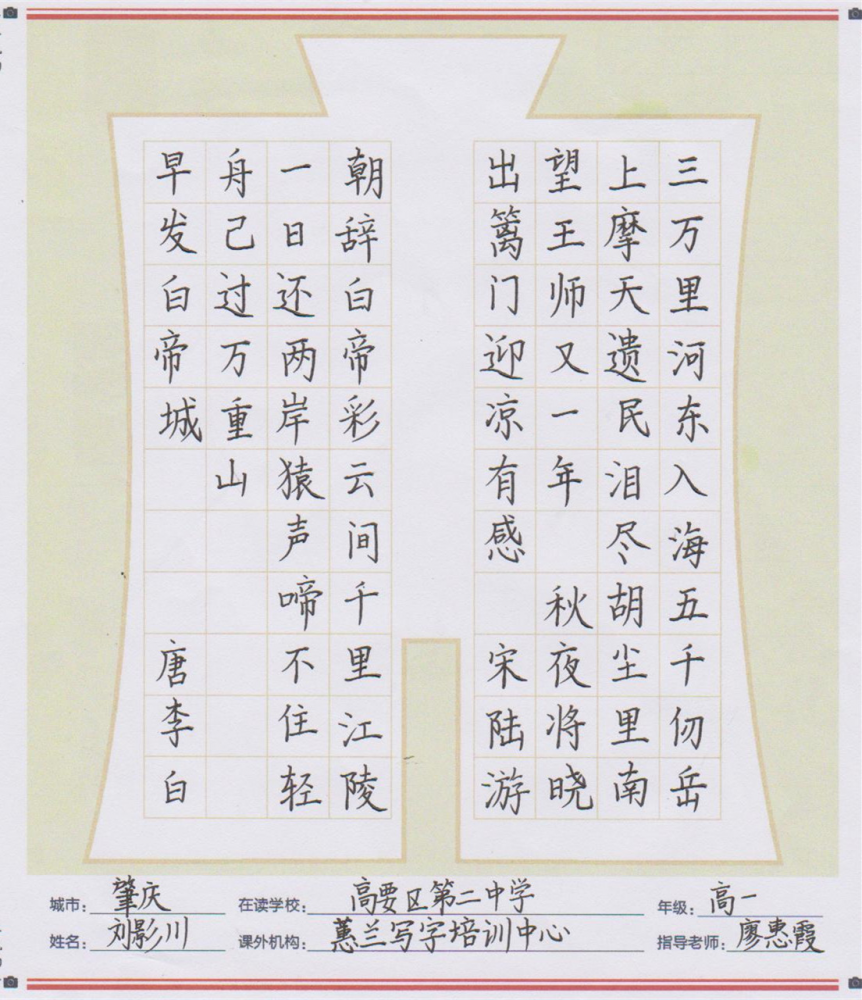 三万里河东入海五千仞岳
上摩天遗民泪尽胡尘里南
望王师又一年 秋夜将晓
出篱门迎凉有感 宋陆游
朝辞白帝彩云间千里江陵
一日还两岸猿声啼不住轻
舟己过万重山
早发白帝城 唐李白
城市：肇庆 在读学校：高要区第二中学 年级：高一
姓名：刘影川 课外机构：蕙兰写字培训中心 指导老师：廖惠霞